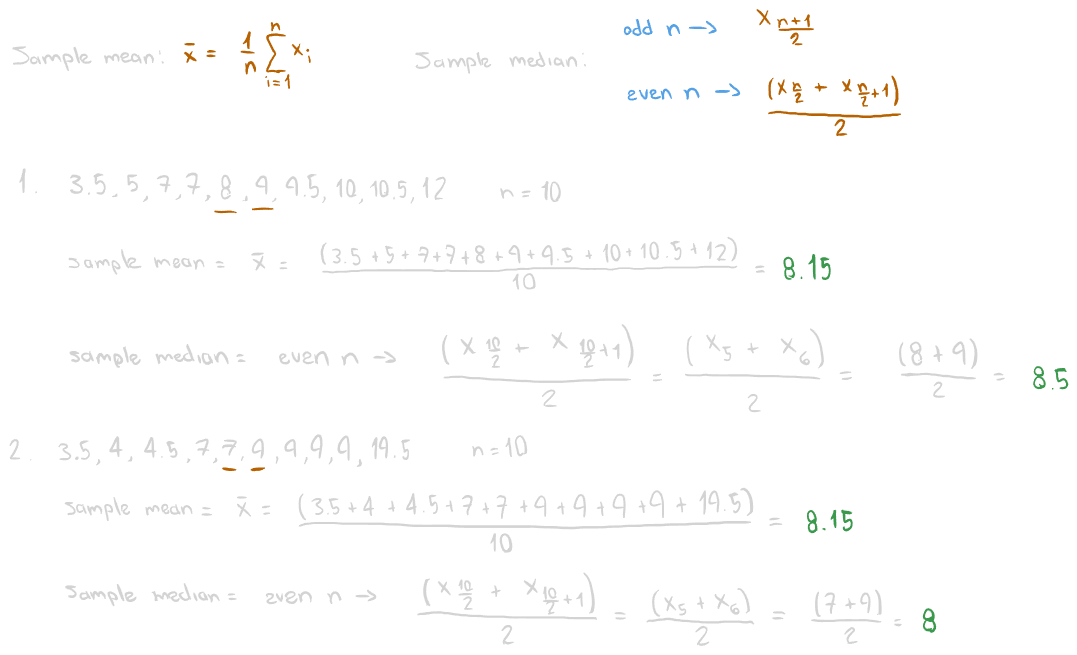 Sample mean: x̄ = 1/n ∑_{i=1}^{n} x_i
Sample median:
odd n → x_{(n+1)/2}
even n → (x_{n/2} + x_{n/2+1})/2
1. 3.5, 5, 7, 7, 8, 9, 9.5, 10, 10.5, 12 n = 10
sample mean = x̄ = (3.5 + 5 + 7 + 7 + 8 + 9 + 9.5 + 10 + 10.5 + 12)/10 = 8.15
sample median = even n → (x_{10/2} + x_{10/2+1})/2 = (x_5 + x_6)/2 = (8 + 9)/2 = 8.5
2. 3.5, 4, 4.5, 7, 7, 9, 9, 9, 9, 19.5 n = 10
sample mean = x̄ = (3.5 + 4 + 4.5 + 7 + 7 + 9 + 9 + 9 + 9 + 19.5)/10 = 8.15
sample median = even n → (x_{10/2} + x_{10/2+1})/2 = (x_5 + x_6)/2 = (7 + 9)/2 = 8